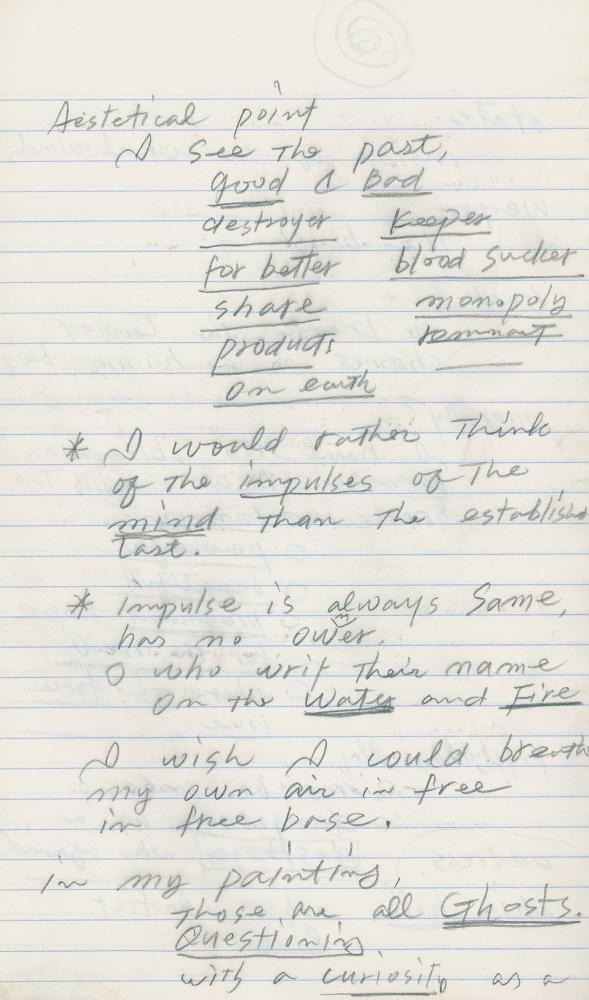 Aestetical point
I see The past,
good & Bad
destroyer keeper
for better blood sucker
share monopoly
products remnant
on earth
* I would rather Think
of The impulses of The
mind than The establish
Last.
* impulse is always same,
has no ower.
o who writ Their name
on The water and Fire
I wish I could breath
my own air in free
in free base.
in my painting,
Those are all Ghosts.
Questioning
with a curiosity as a